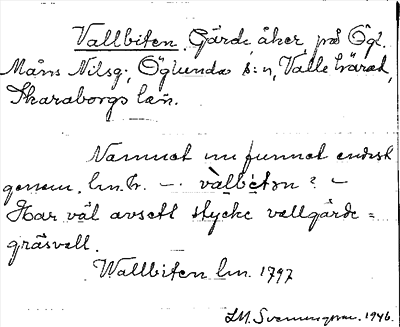 Vallbiten. Gärde åker, på Ögl.
Måns Nilsg., Öglunda s:n, Valle härad,
Skaraborgs län.
Namnet nu funnet endast
genom lm.h. — vàlbétən ? —
Har väl avsett stycke vallgärde =
gräsvall.
Wallbiten lm. 1797
I.M. Svenningsson. 1946.